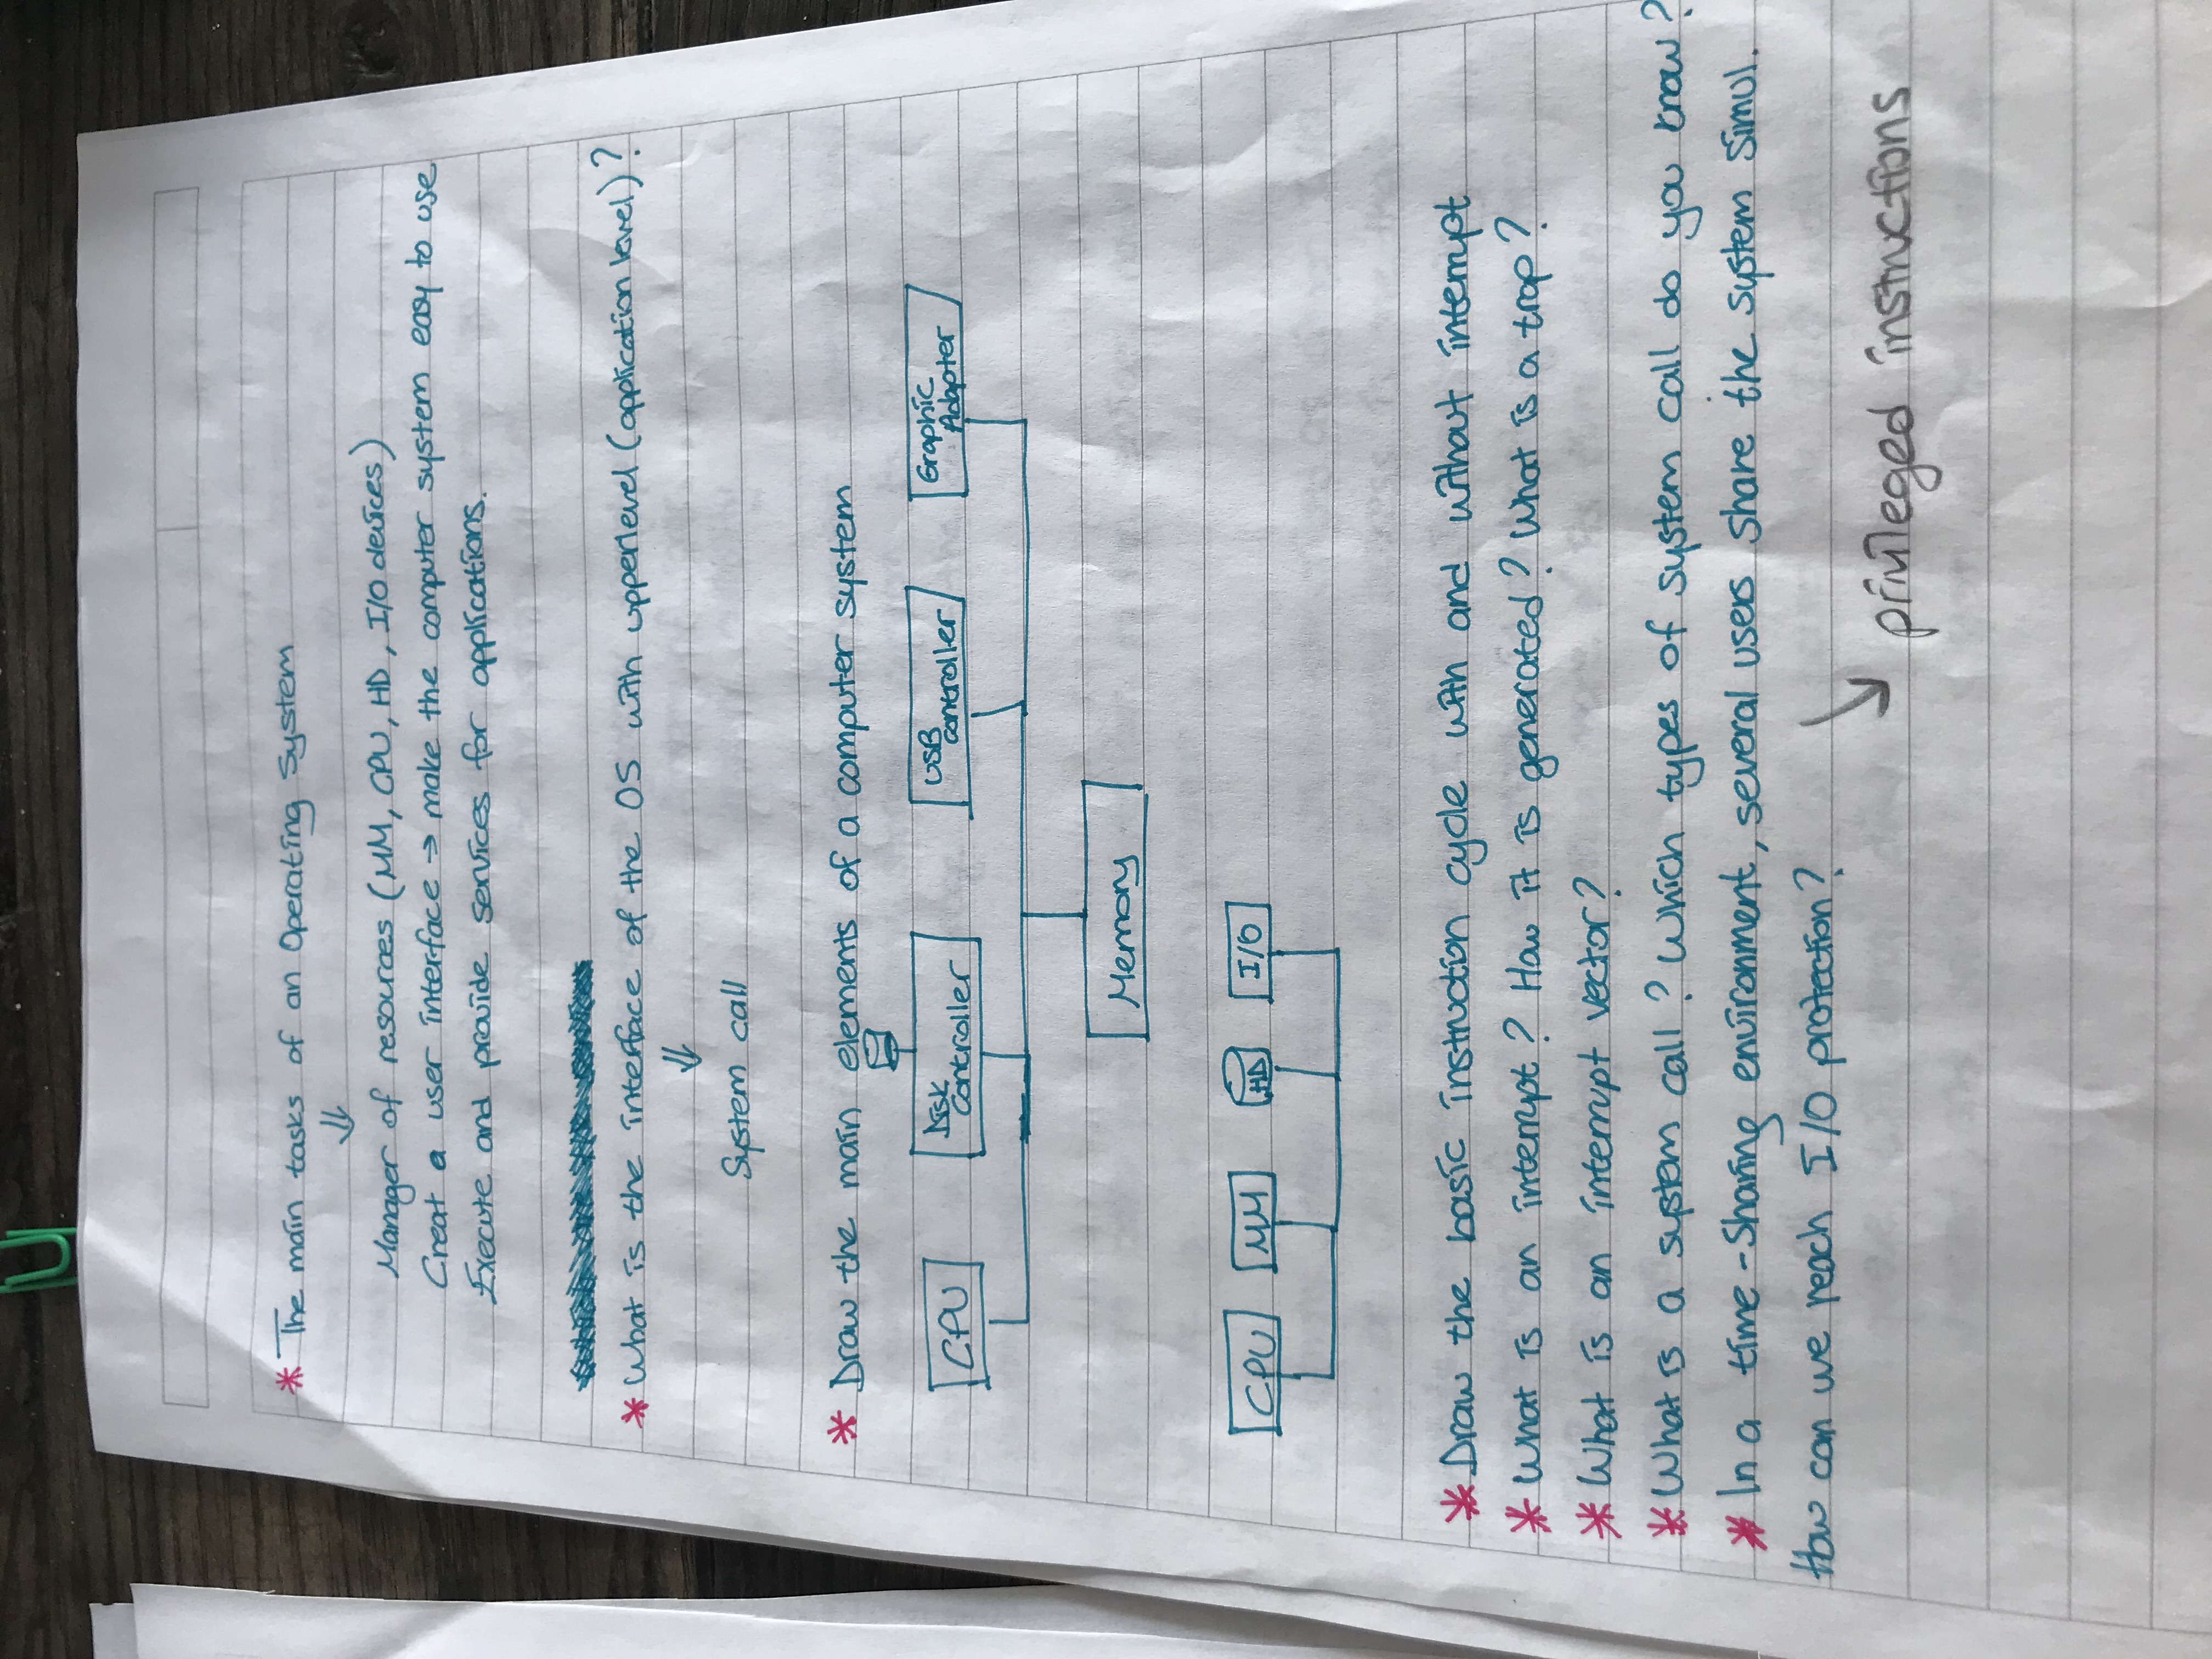 * The main tasks of an Operating System
⇓
Manager of resources (MM, CPU, HD, I/O devices)
Creat a user interface → make the computer system easy to use
Execute and provide services for applications.
* What is the interface of the OS with upperlevel (application level)?
⇓
System call
* Draw the main elements of a computer system
CPU Disk Controller USB controller Graphic Adapter
Memory
CPU MM HD I/O
* Draw the basic instruction cycle with and without interrupt
* What is an interrupt? How it is generated? What is a trap?
* What is an interrupt vector?
* What is a system call? Which types of system call do you know?
* In a time-Sharing environment, several users share the system simul.
How can we reach I/O protection?
↘ privileged instructions